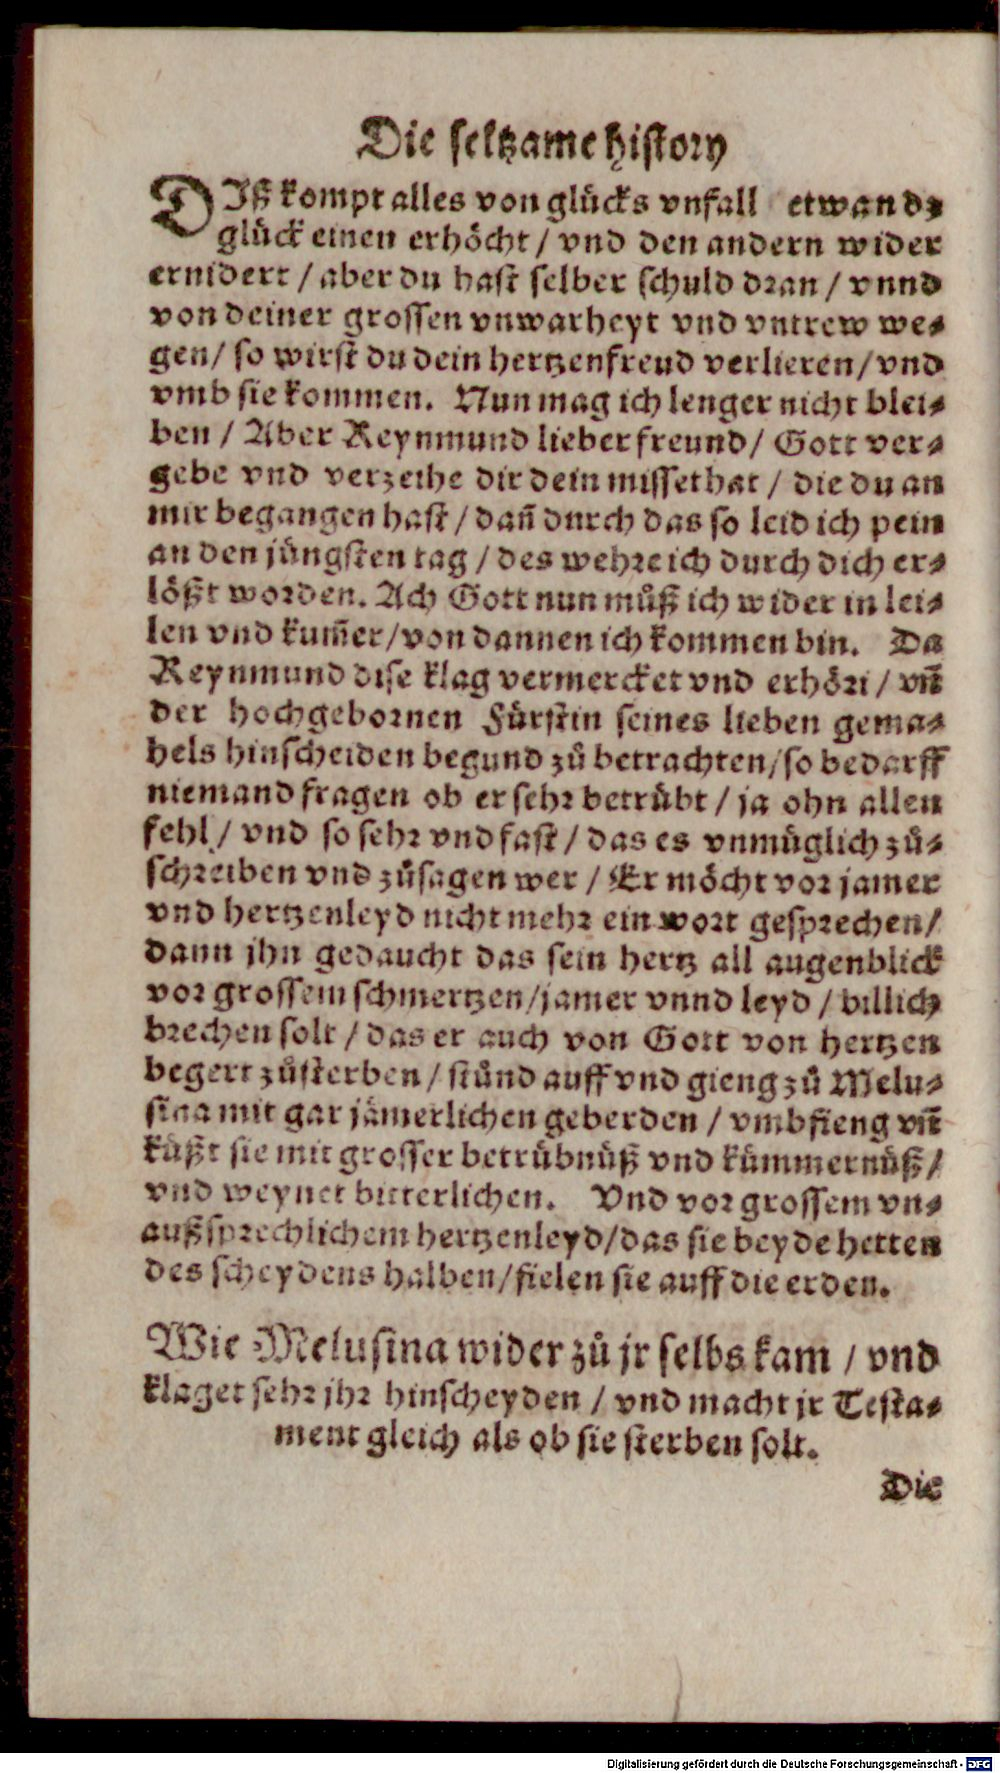 Die seltzame history
DIß kompt alles von glücks vnfall etwan dz
glück einen erhöcht / vnd den andern wider
ernidert / aber du hast selber schuld dran / vnnd
von deiner grossen vnwarheyt vnd vntrew we-
gen / so wirst du dein hertzenfreud verlieren / vnd
vmb sie kommen. Nun mag ich lenger nicht blei-
ben / Aber Reynmund lieber freund / Gott ver-
gebe vnd verzeihe dir dein missethat / die du an
mir begangen hast / dañ durch das so leid ich pein
an den jüngsten tag / des wehre ich durch dich er-
lößt worden. Ach Gott nun můß ich wider in lei-
len vnd kum̃er / von dannen ich kommen bin. Da
Reynmund dise klag vermercket vnd erhört / vñ
der hochgebornen Fürstin seines lieben gema-
hels hinscheiden begund zů betrachten / so bedarff
niemand fragen ob er sehr betrübt / ja ohn allen
fehl / vnd so sehr vnd fast / das es vnmüglich zů-
schreiben vnd zůsagen wer / Er möcht vor jamer
vnd hertzenleyd nicht mehr ein wort gesprechen /
dann jhn gedaucht das sein hertz all augenblick
vor grossem schmertzen / jamer vnnd leyd / billich
brechen solt / das er auch von Gott von hertzen
begert zůsterben / stůnd auff vnd gieng zů Melu-
sina mit gar jämerlichen geberden / vmbfieng vñ
küßt sie mit grosser betrübnüß vnd kümmernüß /
vnd weynet bitterlichen. Vnd vor grossem vn-
außsprechlichem hertzenleyd / das sie beyde hetten
des scheydens halben / fielen sie auff die erden.
Wie Melusina wider zů jr selbs kam / vnd
klaget sehr jhr hinscheyden / vnd macht jr Testa-
ment gleich als ob sie sterben solt.
Die
Digitalisierung gefördert durch die Deutsche Forschungsgemeinschaft - DFG